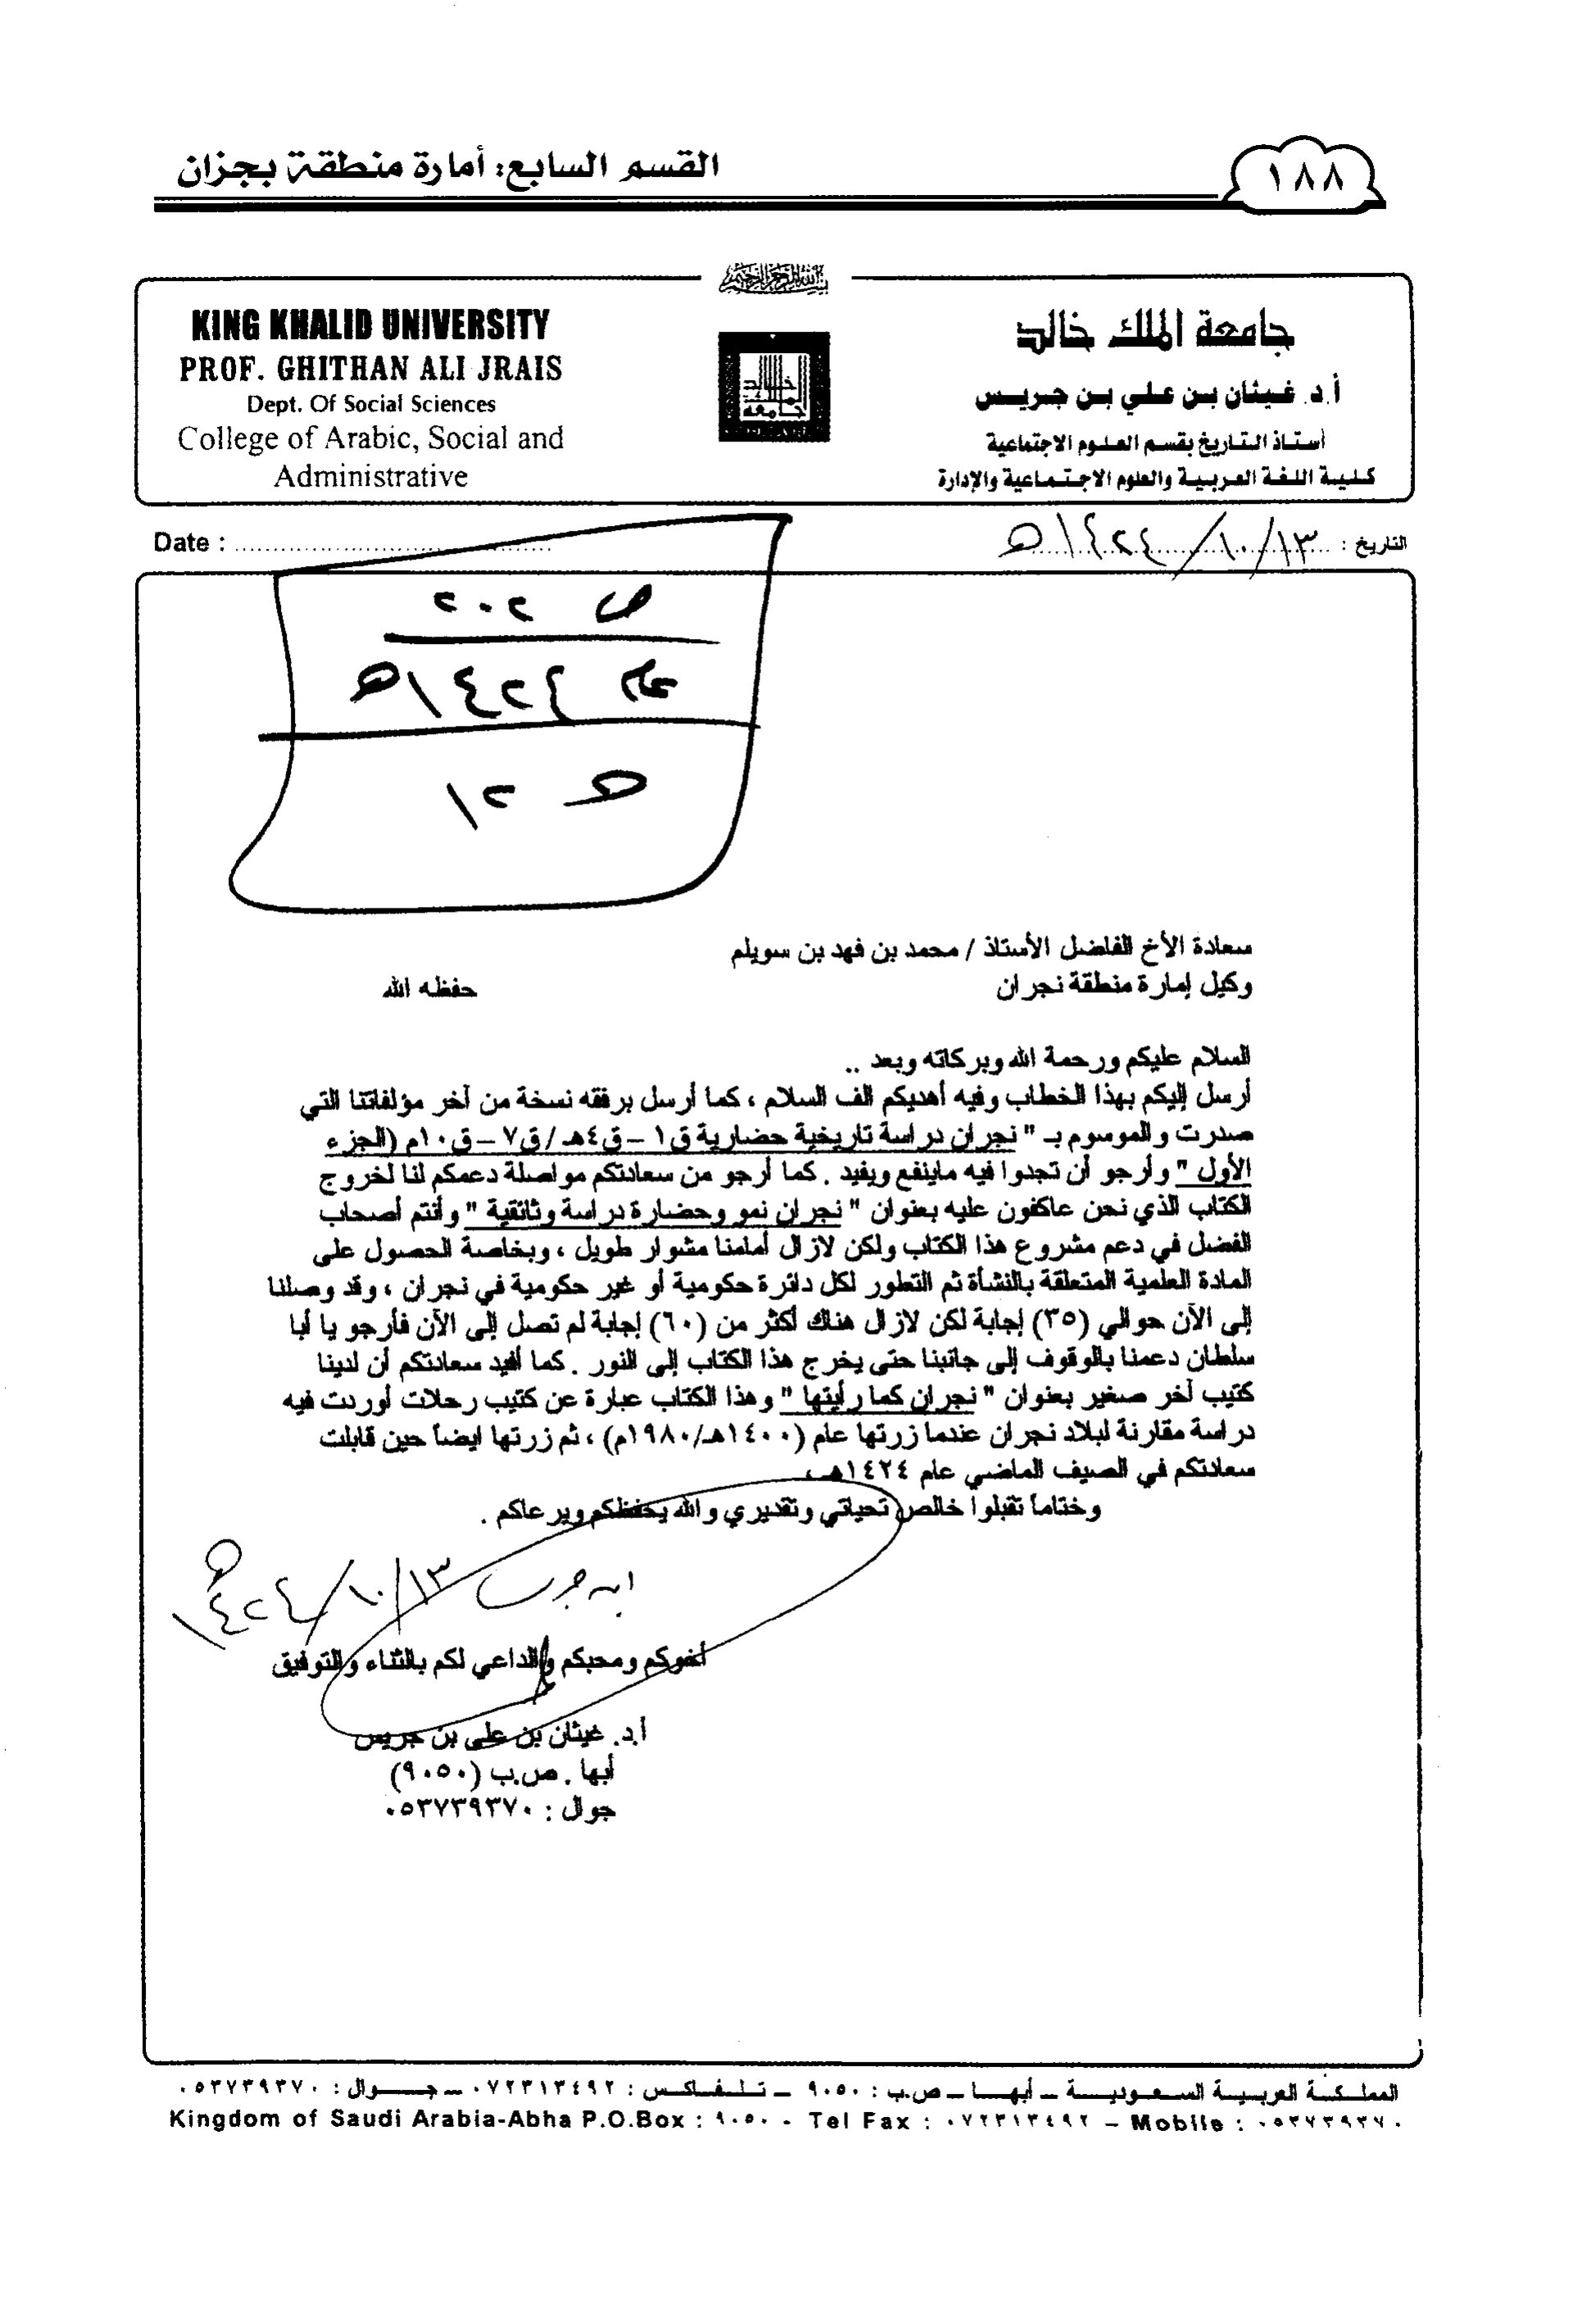 ١٨٨
القسم السابع: أمارة منطقة بجزان
بسم الله الرحمن الرحيم
جامعة الملك خالد
أ.د. غيثان بن علي بن جريس
أستاذ التاريخ بقسم العلوم الاجتماعية
كلية اللغة العربية والعلوم الاجتماعية والإدارة
KING KHALID UNIVERSITY
PROF. GHITHAN ALI JRAIS
Dept. Of Social Sciences
College of Arabic, Social and
Administrative
التاريخ : ١٣/١٠/١٤٢٤هـ
Date :
ص ٢٠٢
عام ١٤٢٤هـ
سعادة الأخ الفاضل الأستاذ / محمد بن فهد بن سويلم
وكيل إمارة منطقة نجران حفظه الله
السلام عليكم ورحمة الله وبركاته وبعد ..
أرسل إليكم بهذا الخطاب وفيه أهديكم الف السلام ، كما أرسل برفقه نسخة من آخر مؤلفاتنا التي
صدرت والموسوم بـ " نجران دراسة تاريخية حضارية ق١ – ق٤هـ/ق٧ – ق١٠م (الجزء
الأول " وأرجو أن تجدوا فيه ماينفع ويفيد . كما أرجو من سعادتكم مواصلة دعمكم لنا لخروج
الكتاب الذي نحن عاكفون عليه بعنوان " نجران نمو وحضارة دراسة وثائقية " وأنتم أصحاب
الفضل في دعم مشروع هذا الكتاب ولكن لازال أمامنا مشوار طويل ، وبخاصة الحصول على
المادة العلمية المتعلقة بالنشأة ثم التطور لكل دائرة حكومية أو غير حكومية في نجران ، وقد وصلنا
إلى الآن حوالي (٣٥) إجابة لكن لازال هناك أكثر من (٦٠) إجابة لم تصل إلى الآن فأرجو يا أبا
سلطان دعمنا بالوقوف إلى جانبنا حتى يخرج هذا الكتاب إلى النور . كما أفيد سعادتكم أن لدينا
كتيب آخر صغير بعنوان " نجران كما رأيتها " وهذا الكتاب عبارة عن كتيب رحلات أوردت فيه
دراسة مقارنة لبلاد نجران عندما زرتها عام (١٤٠٠هـ/١٩٨٠م) ، ثم زرتها ايضاً حين قابلت
سعادتكم في الصيف الماضي عام ١٤٢٤هـ .
وختاماً تقبلوا خالص تحياتي وتقديري والله يحفظكم ويرعاكم .
ابن جريس ١٣/١٠/١٤٢٤هـ
أخوكم ومحبكم والداعي لكم بالثناء والتوفيق
أ.د. غيثان بن علي بن جريس
أبها . ص.ب (٩٠٥٠)
جوال : ٠٥٣٧٣٩٣٧٠
المملكة العربية السعودية – أبها – ص.ب : ٩٠٥٠ – تلفاكس : ٠٧٢٣١٣٤٩٢ – جوال : ٠٥٣٧٣٩٣٧٠
Kingdom of Saudi Arabia-Abha P.O.Box : ٩٠٥٠ - Tel Fax : ٠٧٢٣١٣٤٩٢ – Mobile : ٠٥٣٧٣٩٣٧٠